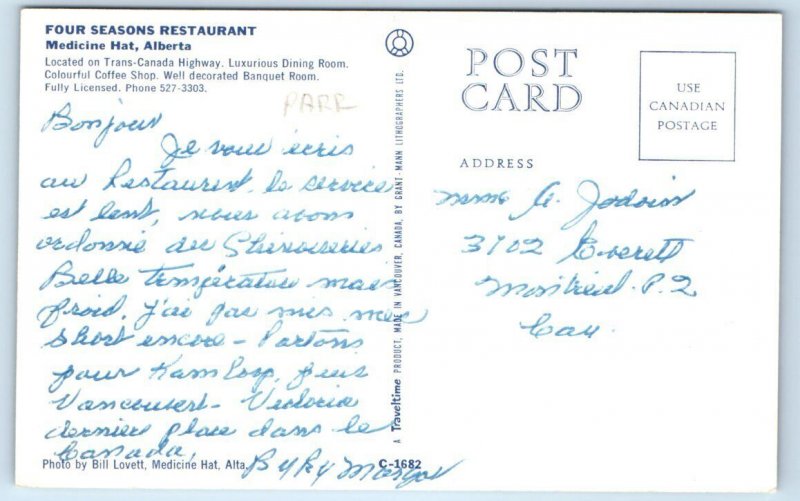 FOUR SEASONS RESTAURANT
Medicine Hat, Alberta
Located on Trans-Canada Highway. Luxurious Dining Room.
Colourful Coffee Shop. Well decorated Banquet Room.
Fully Licensed. Phone 527-3303.
PARR
Bonjour
Je vous écris
au Restaurent, le service
est lent, nous avons
ordonné du Shinoiseries
Belle température mais
froid, j'ai pas mis mes
short encore - Partons
pour Kamloop, puis
Vancouvert - Victoria
dernière place dans le
Canada,
By By Margot
Photo by Bill Lovett, Medicine Hat, Alta.
C-1682
A Traveltime PRODUCT, MADE IN VANCOUVER, CANADA, BY GRANT-MANN LITHOGRAPHERS LTD.
POST
CARD
USE
CANADIAN
POSTAGE
ADDRESS
Mme A. Jodoin
3702 Everett
Montréal. P.Q
Can.